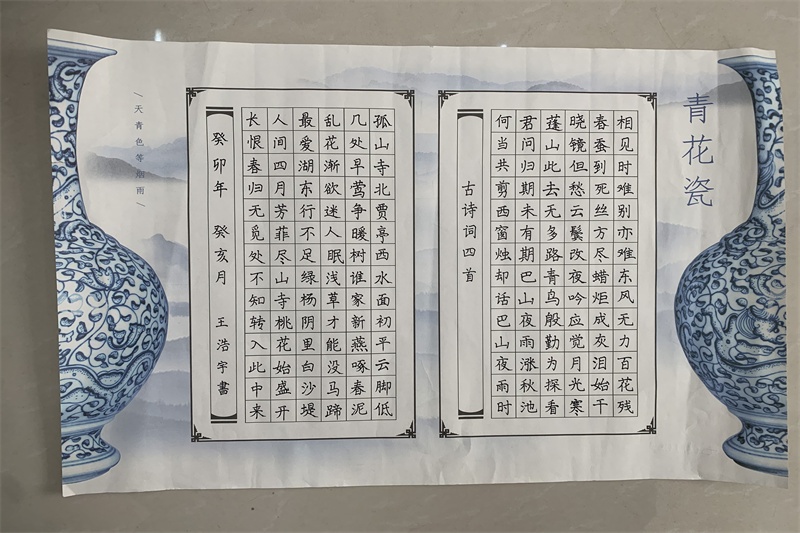 青花瓷
相见时难别亦难东风无力百花残
春蚕到死丝方尽蜡炬成灰泪始干
晓镜但愁云鬓改夜吟应觉月光寒
蓬山此去无多路青鸟殷勤为探看
君问归期未有期巴山夜雨涨秋池
何当共剪西窗烛却话巴山夜雨时
古诗词四首
孤山寺北贾亭西水面初平云脚低
几处早莺争暖树谁家新燕啄春泥
乱花渐欲迷人眼浅草才能没马蹄
最爱湖东行不足绿杨阴里白沙堤
人间四月芳菲尽山寺桃花始盛开
长恨春归无觅处不知转入此中来
癸卯年 癸亥月 王浩宇書
天青色等烟雨